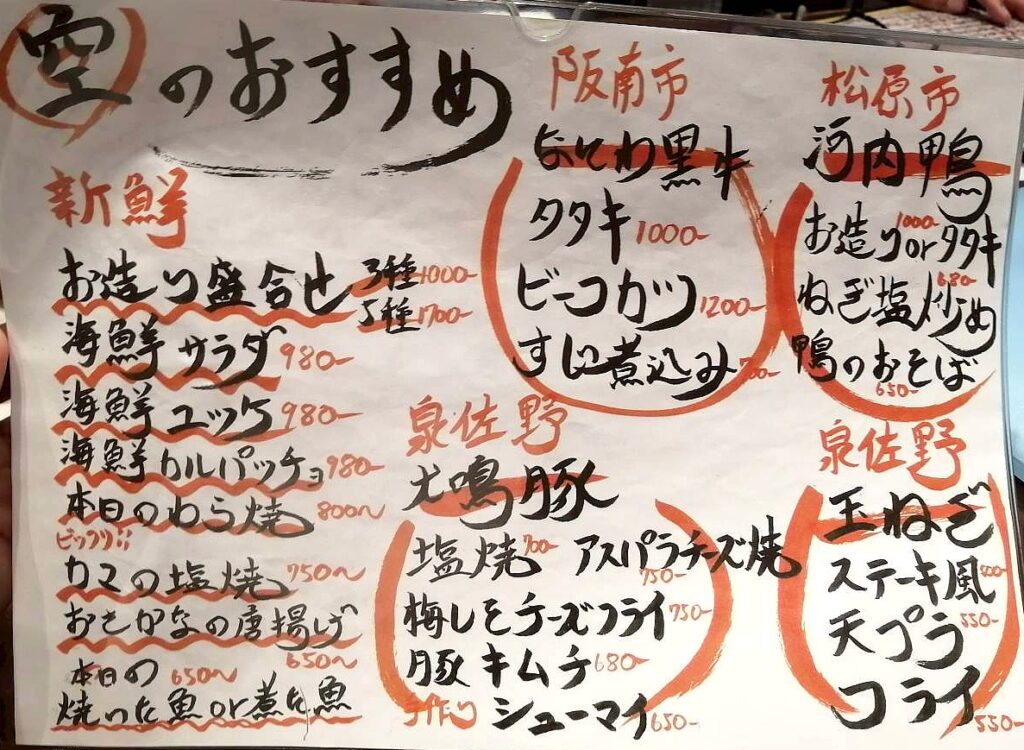 空のおすすめ
新鮮
お造り盛合せ 3種 1000-
5種 1700-
海鮮サラダ 980-
海鮮ユッケ 980-
海鮮カルパッチョ 980-
本日のわら焼 800〜
ビックリ!!
カマの塩焼 750〜
おさかなの唐揚げ 650〜
本日の 650〜
焼いた魚or煮た魚
阪南市
なにわ黒牛
タタキ 1000-
ビーフカツ 1200-
すじ煮込み 700-
松原市
河内鴨
お造りorタタキ 1000-
ねぎ塩炒め 680-
鴨のおそば 650-
泉佐野
犬鳴豚
塩焼 700- アスパラチーズ焼 750-
梅しそチーズフライ 750-
豚キムチ 680-
手作り シューマイ 650-
泉佐野
玉ねぎ
ステーキ風 500-
天プラ 550-
フライ 550-